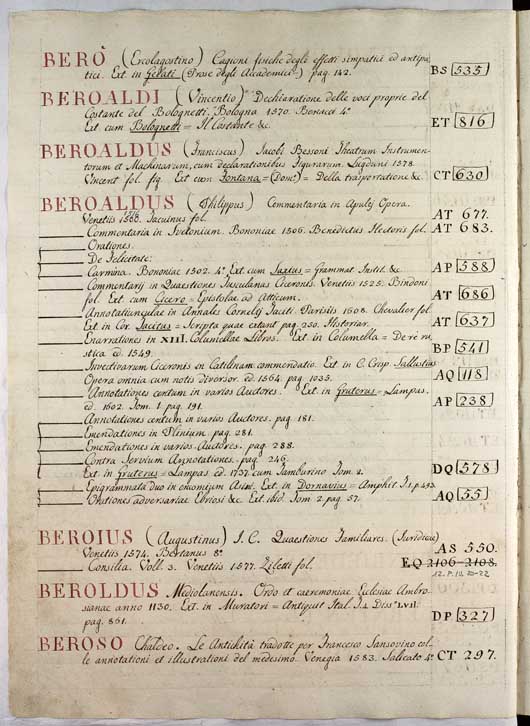 BERÒ (Ercolagostino) Cagioni fisiche degli effetti simpatici ed antipa-
tici. Ext in Gelati (Prose degli Accademici) pag. 142. BS 535
BEROALDI (Vincentio) Dechiaratione delle voci proprie del
Costante del Bolognetti. Bologna 1570. 4°
Ext. cum Bolognetti = Il Costante &c. ET 816
BEROALDUS (Franciscus) Jacobi Bessoni Theatrum Instrumen-
torum et Machinarum, cum declarationibus Figurarum. Lugduni 1578.
Vincent fol. fig. Ext cum Fontana = (Dom.°) = Della trasportatione &c. CT 630
BEROALDUS (Philippus) Commentaria in Apulej Opera.
Venetiis fol. AT 677.
Commentaria in Svetonium. Bononiae 1506. Benedictus Hectoris fol. AT 683.
Orationes.
De Felicitate.
Carmina. Bononiae 1502. 4° Ext. cum = Grammat. Instit. &c AP 588
Commentarij in Quaestiones Tusculanas Ciceronis. Venetiis 1525. Bindoni
fol. Ext. cum Cicero = Epistolae ad Atticum. AT 686
Annotatiunculae in Annales Cornelij Taciti. Parisiis 1608. Chevalier fol.
Ext in Cor. Tacitus = Scripta quae extant pag. 250. Historiar. AT 637
Enarrationes in XIII. Columellae Libros. Ext in Columella = De re ru-
stica ed. 1549. BP 541
Invectivarum Ciceronis in Catilinam commendatio. Ext. in C. Crisp. Sallustius
Opera omnia cum notis diversor. ed. 1564. pag. 1035. AQ 118
Annotationes centum in varios Auctores. Ext. in Gruterus = Lampas.
ed. 1602. Tom. 1. pag. 191. AP 238
Annotationes centum in varios Auctores. pag. 181.
Emendationes in Plinium. pag. 281.
Emendationes in varios Auctores. pag. 288.
Contra Servium Annotationes. pag. 246.
Ext. in Gruterus = Lampas ed. 1737. cum Tamburino Tom. 2. DQ 578
Epigrammata duo in encomium Asini. Ext. in Dornavius = Amphit. T.1. p. 493.
Orationes adversariae Ebriosi &c. Ext. ibid. Tom. 2. pag. 57. AQ 55
BEROIUS (Augustinus) I. C. Quaestiones Familiares. (Juridicae)
Venetiis 1574. Bertanus 8° AS 550.
Consilia. Voll. 3. Venetiis 1577. Ziletti fol. EQ 2106-2108.
12. P. III. 20-22
BEROLDUS Mediolanensis. Ordo et caeremoniae Eclesiae Ambro-
sianae anno 1130. Ext. in Muratori = Antiquit. Ital. T.4. Diss. LVII.
pag. 861. DP 327
BEROSO Chaldeo. Le Antichità tradotte per Francesco Sansovino col-
le annotationi et illustrationi del medesimo. Venegia 1583. Salicato 4° CT 297.